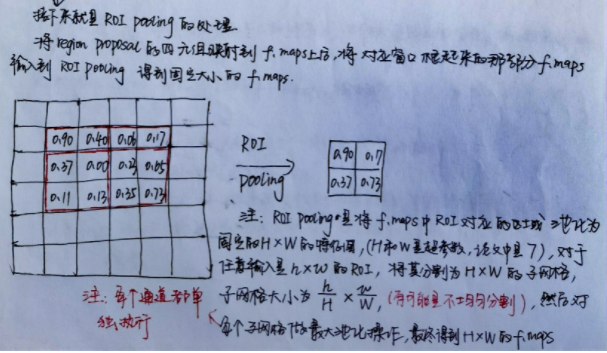 接下来就是 ROI pooling 的处理
将 region proposal 的四元组映射到 f.maps上后,将对应窗口框起来的那部分 f.maps
输入到 ROI pooling 得到固定大小的 f.maps.
0.90 0.40 0.06 0.17
0.37 0.00 0.23 0.05
0.11 0.13 0.35 0.73
ROI
pooling
0.90 0.17
0.37 0.73
注: ROI pooling 是将 f.maps 中 ROI 对应的区域池化为
固定的 H×W 的特征图, (H和W是超参数, 论文中是7), 对于
任意输入是 h×w 的 ROI, 将其分割为 H×W 的子网格,
子网格大小为 h/H × w/W, (有可能是不均匀分割), 然后对
每个子网格做最大池化操作, 最终得到 H×W 的 f.maps
注: 每个通道都单
独执行